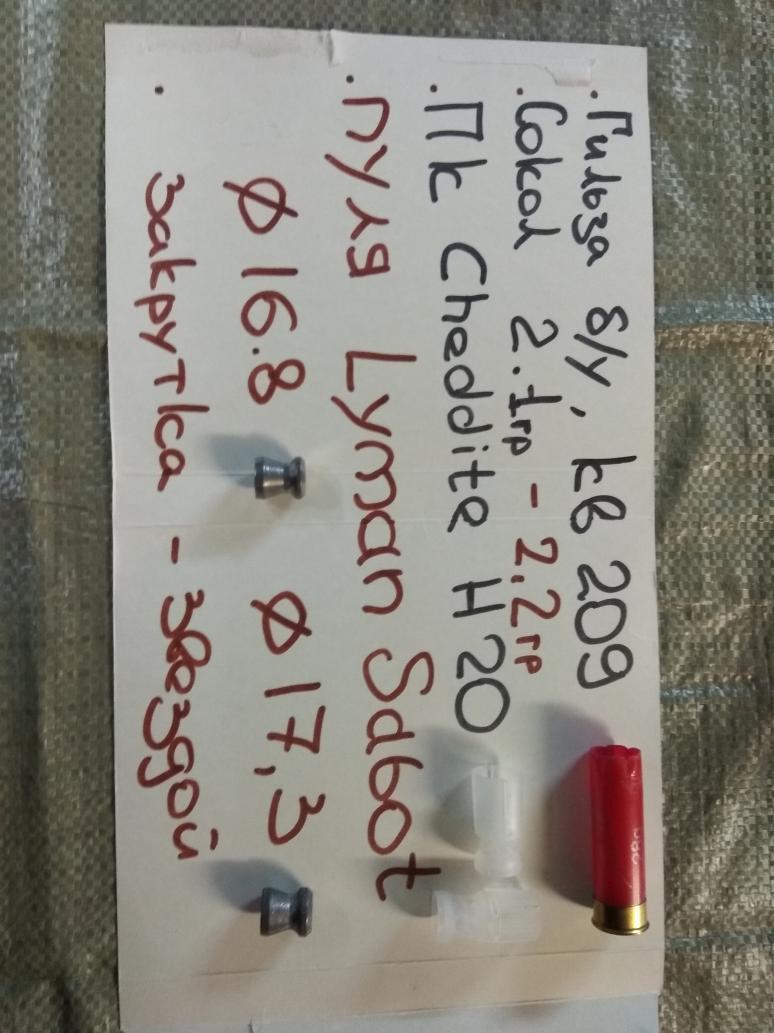 . Гильза б/у, кв 209
. Сокол 2.1гр - 2,2гр
. Пк Cheddite H20
. пуля Lyman Sabot
ø 16.8 ø 17,3
. закрутка - звездой